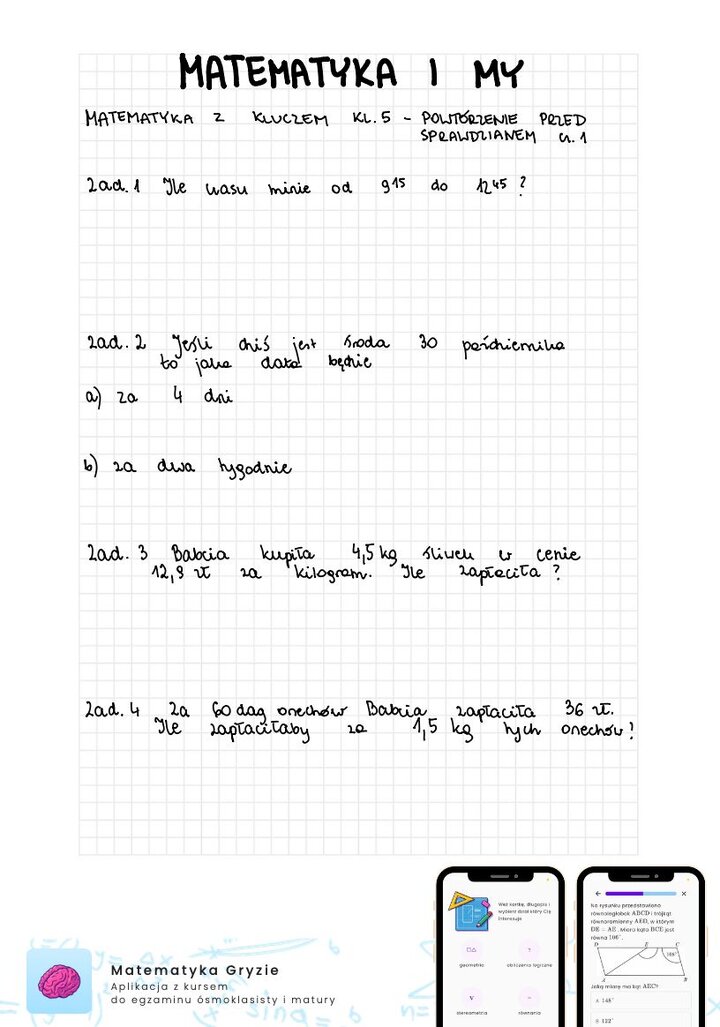 MATEMATYKA I MY
MATEMATYKA Z KLUCZEM KL. 5 - POWTÓRZENIE PRZED
SPRAWDZIANEM cz. 1
Zad. 1 Ile czasu minie od 9¹⁵ do 12⁴⁵ ?
Zad. 2 Jeśli dziś jest środa 30 października
to jaka data będzie
a) za 4 dni
b) za dwa tygodnie
Zad. 3 Babcia kupiła 4,5 kg śliwek w cenie
12,9 zł za kilogram. Ile zapłaciła ?
Zad. 4 Za 60 dag orzechów Babcia zapłaciła 36 zł.
Ile zapłaciłaby za 1,5 kg tych orzechów?
Weź kartkę, długopis i
wybierz dział który Cię
interesuje
geometria
obliczenia logiczne
stereometria
równania
Na rysunku przedstawiono
równoległobok ABCD i trójkąt
równoramienny AED, w którym
DE = AE. Miara kąta BCE jest
równa 106°.
D E C
A B
Jaką miarę ma kąt AEC?
A 148°
B 122°
Matematyka Gryzie
Aplikacja z kursem
do egzaminu ósmoklasisty i matury